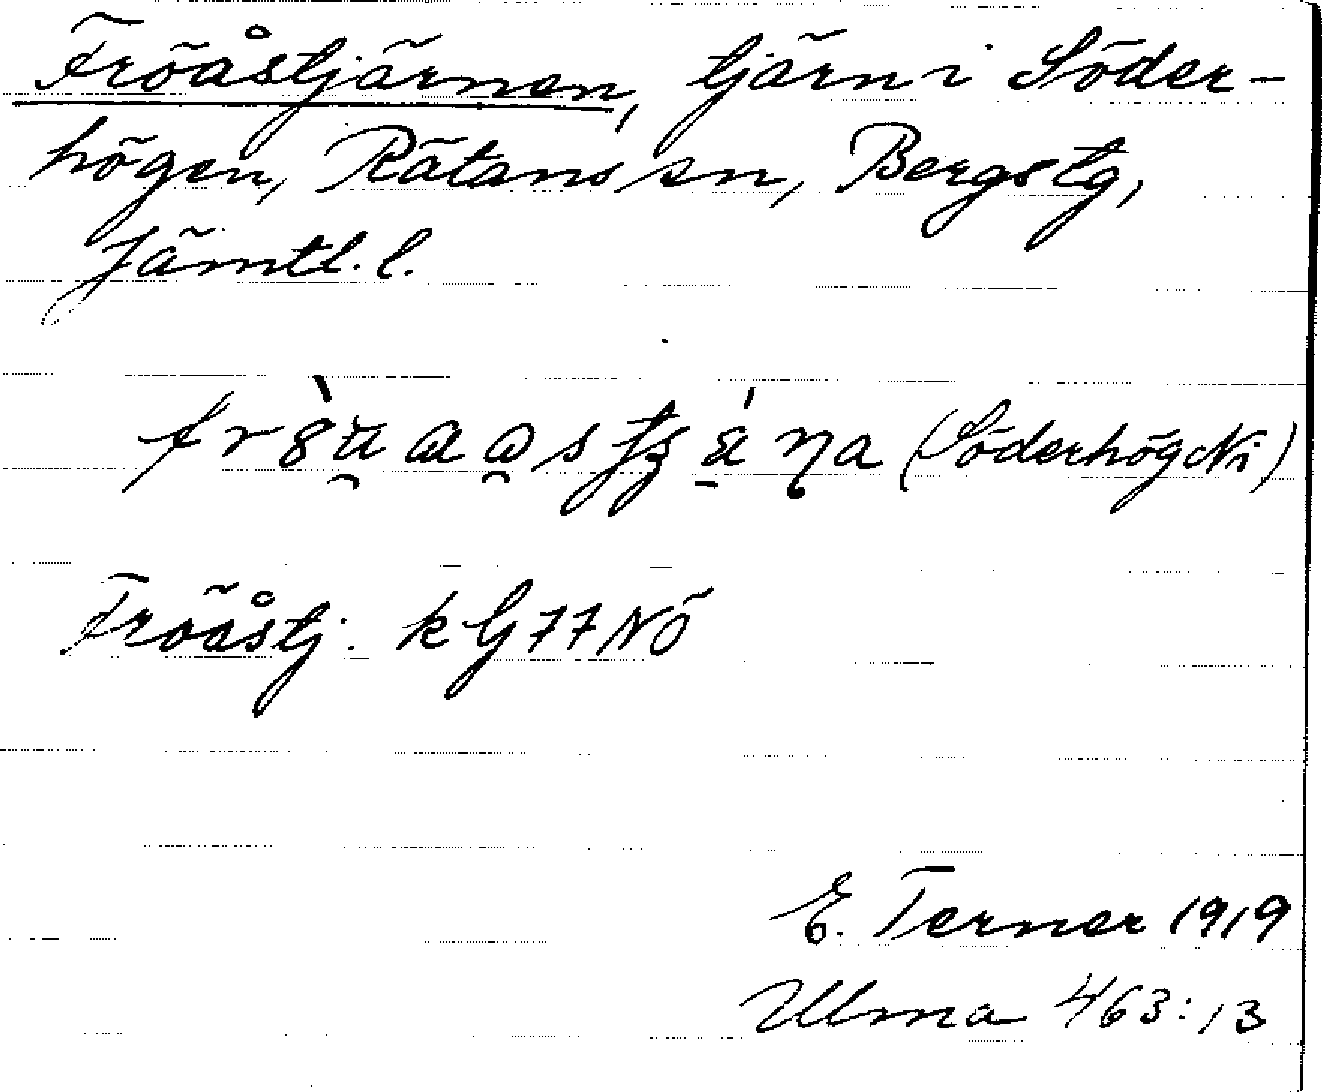 Fröåstjärnen, tjärn i Söder-
högen, Rätans sn, Bergs tg,
Jämtl. l.
(Söderhög
Fröåstj. k G 77 NÖ
E. Terner 1919
Ulma 463:13